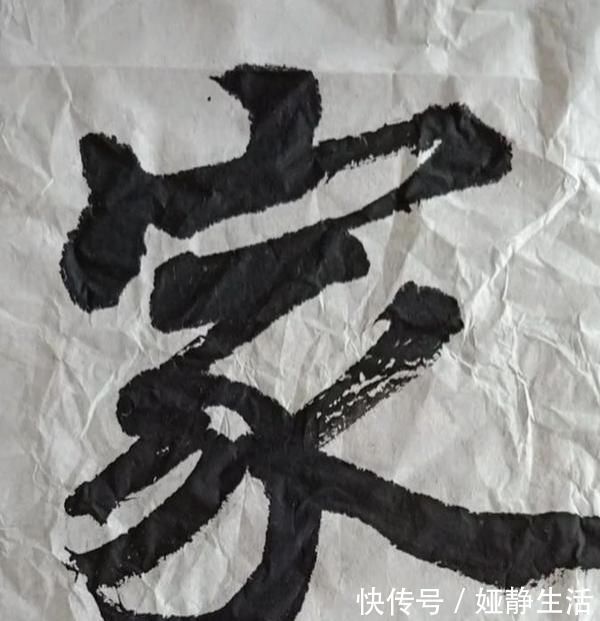 家
快传号 / 娅静生活